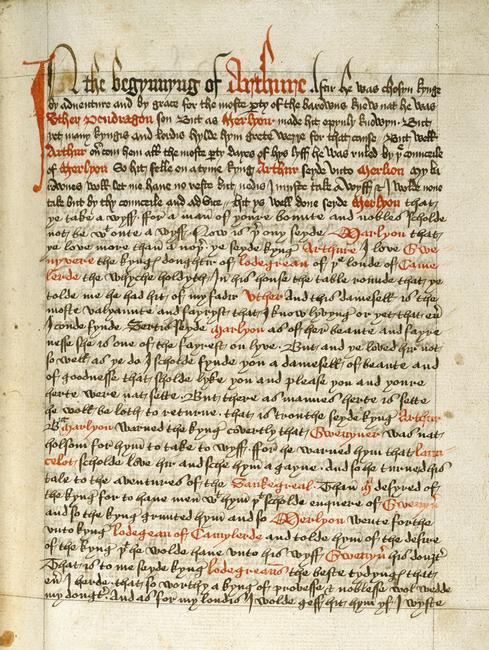 In the begynnyng of Arthure Aftir he was chosyn kynge
by adventure and by grace for the moste pty of the barowns knew nat he was
Uther Pendragon son But as Merlyon made hit opynly knowyn. But
yet many kyngis and lordis hylde hym grete werre for that cause / But well
Arthur ou'com hem all the moste pty dayes of hys lyff he was ruled by þe counceile
of Merlyon So hit felle on a tyme kyng Arthur seyde unto Merlion My ba
rownes woll let me have no reste but nedis I muste take a wyff & I wolde none
take but by thy counceile and advice hit ys well done seyde Merlyon that
ye take a wyff for a man of youre bounte and nobles scholde
not be wt oute a wyff Now is þr ony seyde Marlyon that
ye love more than a nothr ye seyde kyng Arthure I love Gwe
nyvere the kynges doughtir of lodegrean of þe londe of Came
lerde the whyche holdyth In his house the table rounde that ye
tolde me he had hit of my fadir Uther And this damesell is the
moste valyaunte and fayryst that I know lyvyng or yet that ev'
I coude fynde Sertis seyde Marlyon as of her beaute and fayre
nesse she is one of the fayrest on lyve. But and ye loved hir not
so well as ye do I scholde fynde you a damesell of beaute and
of goodnesse that sholde lyke you and please you and youre
herte were nat sette. But there as mannes herte is sette
he woll be loth to returne. that is trouthe seyde kyng Arthur
But Marlyon warned the kyng covertly that Gwenyver was nat
holsom for hym to take to wyff. ffor he warned hym that laun
celot scholde love hir and sche hym agayne. And so he turned his
tale to the aventures of the Sankegreal. Than M desyred of
the kyng for to have men wt hym þt scholde enquere of Gwenyv'
and so the kyng graunted hym and so Merlyon wente forthe
unto kyng lodegean of Camylerde and tolde hym of the desire
of the kyng þt he wolde have unto his wyff Gwenyv' his dought'
That is to me seyde kyng lodegreauns the beste tydynges that
ev' I herde that so worthy a kyng of prouesse & noblesse wol wedde
my dought'. And as for my londis I wolde geff hit hym yf I wyste